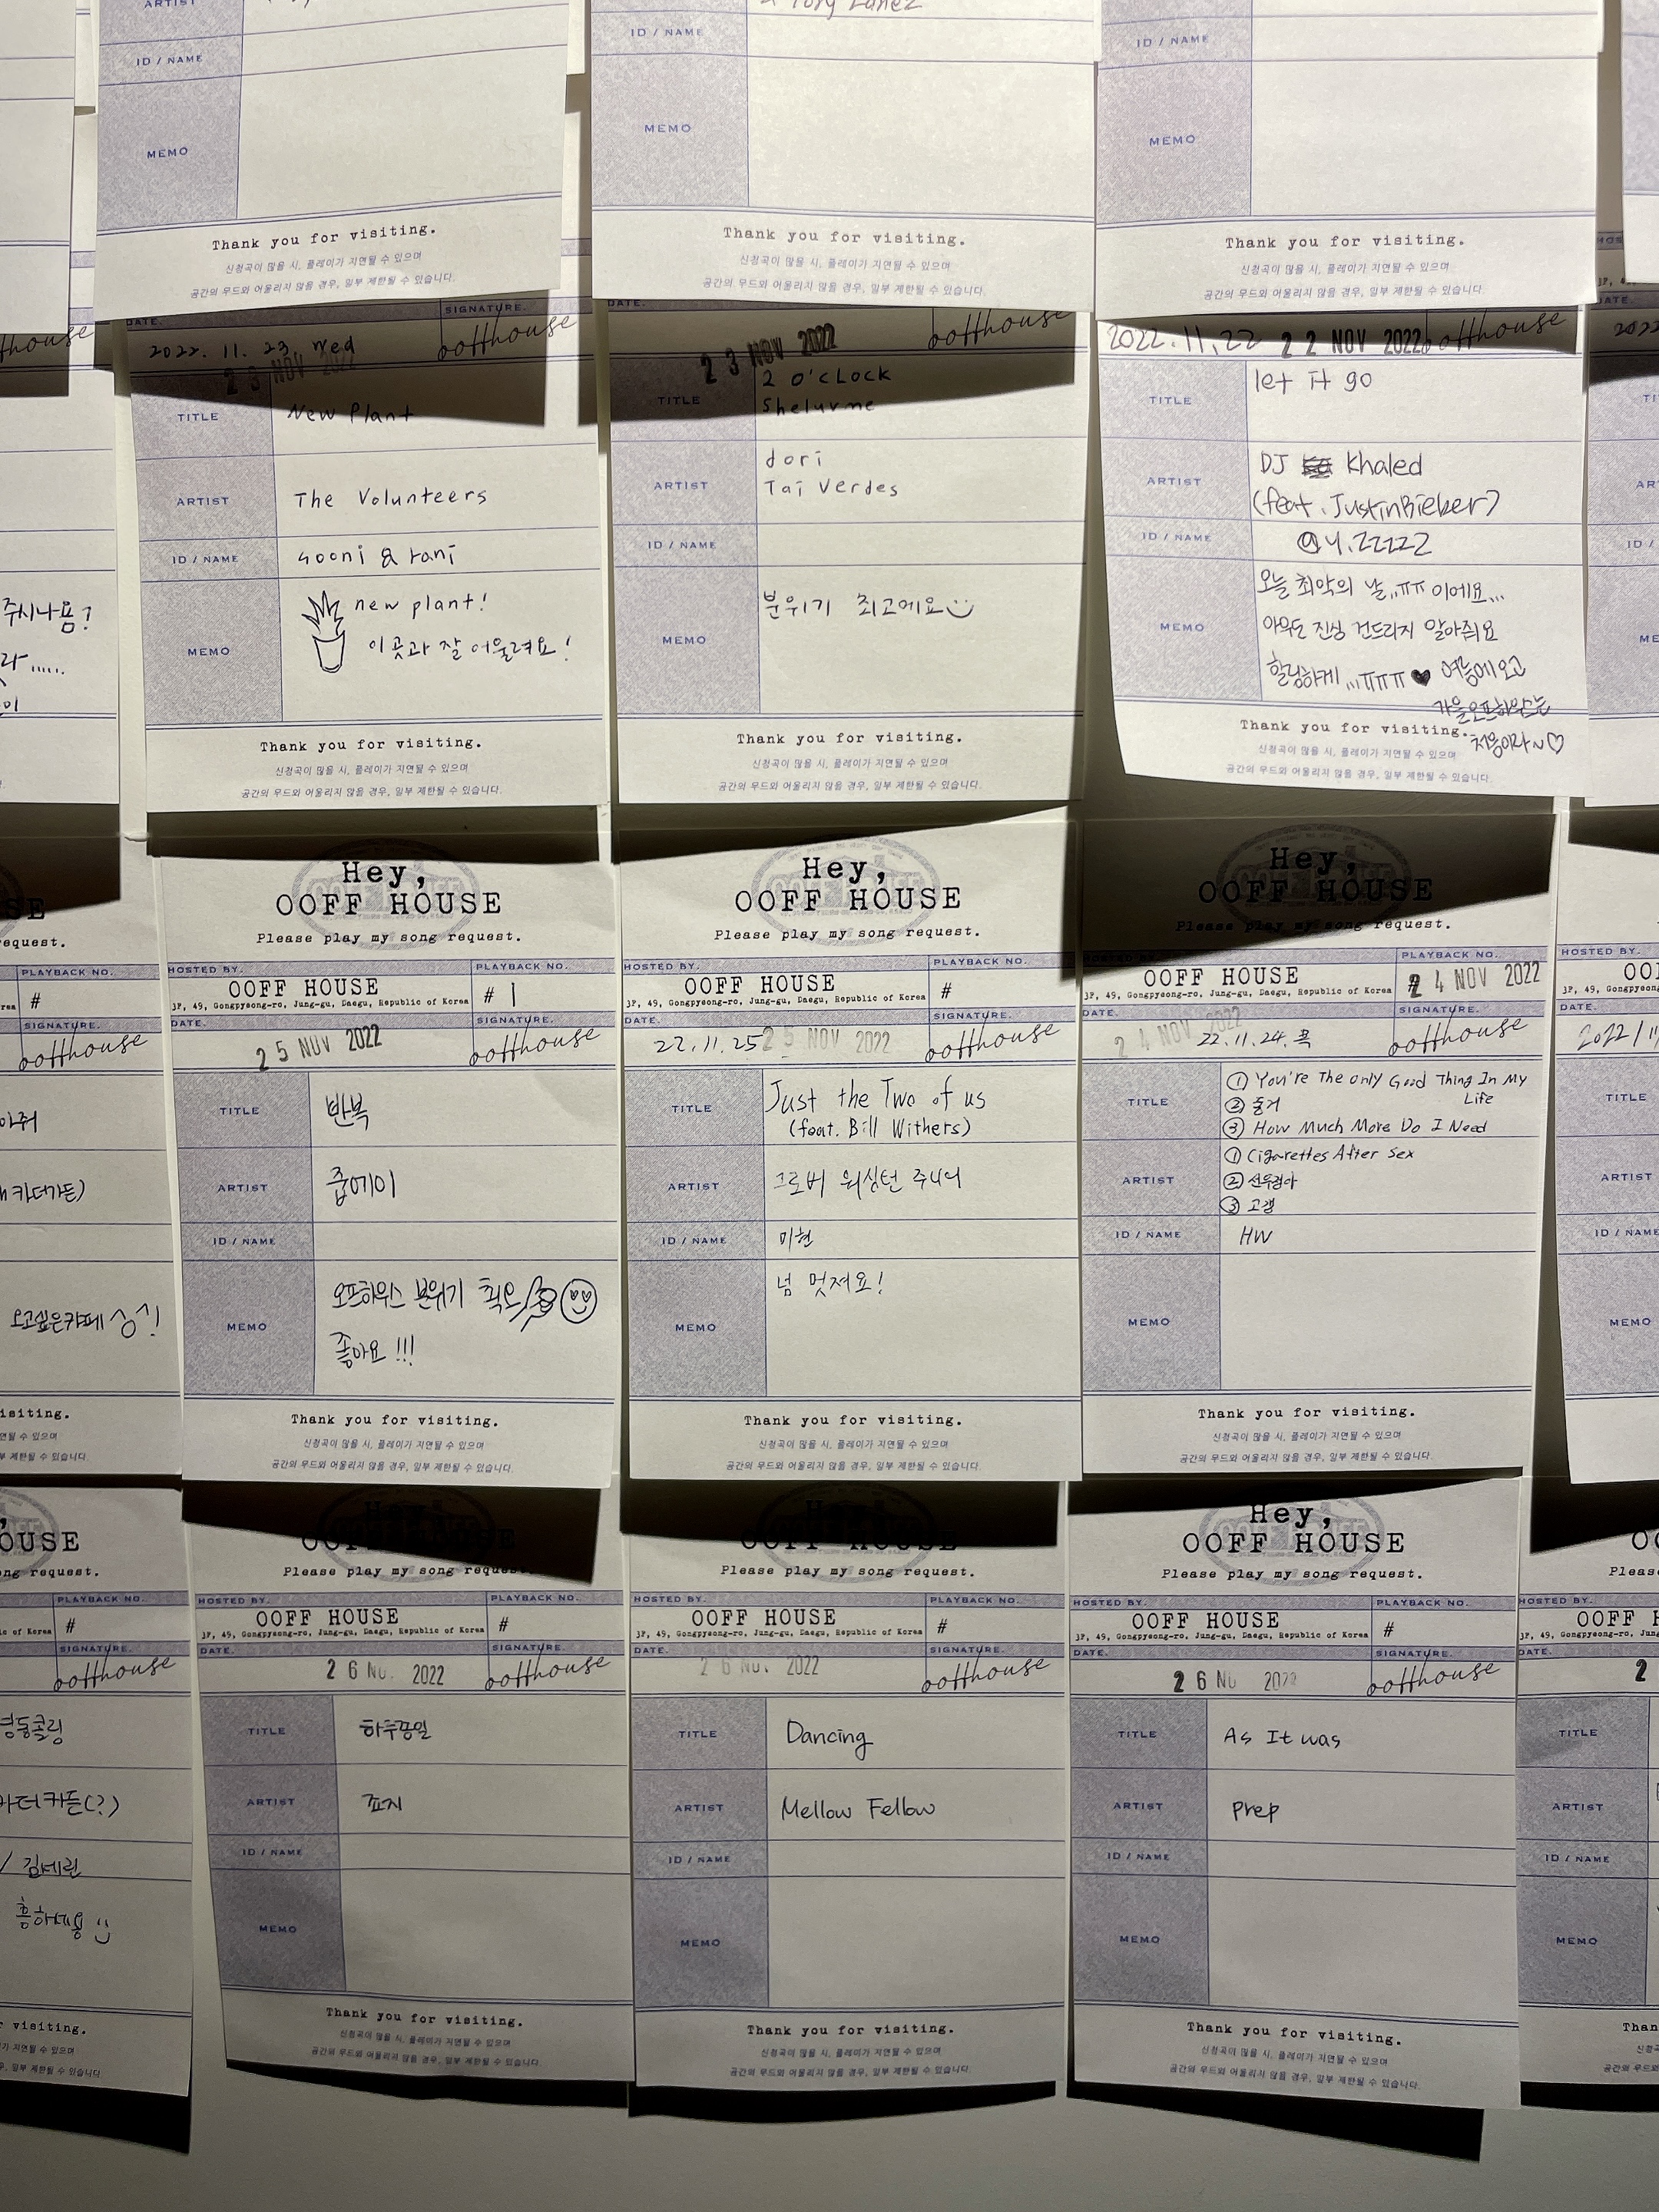 ARTIST
ID / NAME
MEMO
Thank you for visiting.
신청곡이 많을 시, 플레이가 지연될 수 있으며
공간의 무드와 어울리지 않을 경우, 일부 제한될 수 있습니다.
Tory Lanez
ID / NAME
MEMO
Thank you for visiting.
신청곡이 많을 시, 플레이가 지연될 수 있으며
공간의 무드와 어울리지 않을 경우, 일부 제한될 수 있습니다.
ID / NAME
MEMO
Thank you for visiting.
신청곡이 많을 시, 플레이가 지연될 수 있으며
공간의 무드와 어울리지 않을 경우, 일부 제한될 수 있습니다.
주시나욤?
DATE.
SIGNATURE.
2022. 11. 23. Wed
23 NOV 2022
ooffhouse
TITLE
New Plant
ARTIST
The Volunteers
ID / NAME
sooni & rani
MEMO
new plant!
이곳과 잘 어울려요!
Thank you for visiting.
신청곡이 많을 시, 플레이가 지연될 수 있으며
공간의 무드와 어울리지 않을 경우, 일부 제한될 수 있습니다.
DATE.
23 NOV 2022
ooffhouse
TITLE
2 O'CLOCK
Sheluvme
ARTIST
dori
Tai Verdes
ID / NAME
MEMO
분위기 최고에요
Thank you for visiting.
신청곡이 많을 시, 플레이가 지연될 수 있으며
공간의 무드와 어울리지 않을 경우, 일부 제한될 수 있습니다.
2022.11.22
22 NOV 2022
ooffhouse
TITLE
let it go
ARTIST
DJ Khaled
(feat. JustinBieber)
ID / NAME
@y.zzzzz
MEMO
오늘 최악의 날,,ㅠㅠ 이에요...
아무도 진심 건드리지 말아줘요
힐링하게,,,ㅠㅠㅠ♥ 여름에 오고
가을오프하우스는
처음이라~♡
Thank you for visiting.
신청곡이 많을 시, 플레이가 지연될 수 있으며
공간의 무드와 어울리지 않을 경우, 일부 제한될 수 있습니다.
PLAYBACK NO.
#
SIGNATURE.
ooffhouse
카더가든)
오고싶은카페
Hey,
OOFF HOUSE
Please play my song request.
HOSTED BY.
OOFF HOUSE
3F, 49, Gongpyeong-ro, Jung-gu, Daegu, Republic of Korea
PLAYBACK NO.
# 1
DATE.
25 NOV 2022
SIGNATURE.
ooffhouse
TITLE
반복
ARTIST
쥽에이
ID / NAME
MEMO
오프하우스 분위기 최고
좋아요 !!!
Thank you for visiting.
신청곡이 많을 시, 플레이가 지연될 수 있으며
공간의 무드와 어울리지 않을 경우, 일부 제한될 수 있습니다.
Hey,
OOFF HOUSE
Please play my song request.
HOSTED BY.
OOFF HOUSE
3F, 49, Gongpyeong-ro, Jung-gu, Daegu, Republic of Korea
PLAYBACK NO.
#
DATE.
22.11.25
25 NOV 2022
SIGNATURE.
ooffhouse
TITLE
Just the Two of us
(feat. Bill Withers)
ARTIST
그로버 워싱턴 주니어
ID / NAME
미현
MEMO
넘 멋져요!
Thank you for visiting.
신청곡이 많을 시, 플레이가 지연될 수 있으며
공간의 무드와 어울리지 않을 경우, 일부 제한될 수 있습니다.
Hey,
OOFF HOUSE
Please play my song request.
HOSTED BY.
OOFF HOUSE
3F, 49, Gongpyeong-ro, Jung-gu, Daegu, Republic of Korea
PLAYBACK NO.
# 24 NOV 2022
DATE.
24 NOV 2022
22.11.24.목
SIGNATURE.
ooffhouse
TITLE
① You're The only Good Thing In My
Life
② 줄거
③ How Much More Do I Need
ARTIST
① Cigarettes After Sex
② 선우정아
③ 고갱
ID / NAME
HW
MEMO
Thank you for visiting.
신청곡이 많을 시, 플레이가 지연될 수 있으며
공간의 무드와 어울리지 않을 경우, 일부 제한될 수 있습니다.
TITLE
ARTIST
MEMO
PLAYBACK NO.
#
SIGNATURE.
ooffhouse
카더가든(?)
/ 김세린
흥하세용
Hey,
OOFF HOUSE
Please play my song request.
HOSTED BY.
OOFF HOUSE
3F, 49, Gongpyeong-ro, Jung-gu, Daegu, Republic of Korea
PLAYBACK NO.
#
DATE.
26 NO. 2022
SIGNATURE.
ooffhouse
TITLE
하루종일
ARTIST
죠지
ID / NAME
MEMO
Thank you for visiting.
신청곡이 많을 시, 플레이가 지연될 수 있으며
공간의 무드와 어울리지 않을 경우, 일부 제한될 수 있습니다.
Hey,
OOFF HOUSE
Please play my song request.
HOSTED BY.
OOFF HOUSE
3F, 49, Gongpyeong-ro, Jung-gu, Daegu, Republic of Korea
PLAYBACK NO.
#
DATE.
26 NO. 2022
SIGNATURE.
ooffhouse
TITLE
Dancing
ARTIST
Mellow Fellow
ID / NAME
MEMO
Thank you for visiting.
신청곡이 많을 시, 플레이가 지연될 수 있으며
공간의 무드와 어울리지 않을 경우, 일부 제한될 수 있습니다.
Hey,
OOFF HOUSE
Please play my song request.
HOSTED BY.
OOFF HOUSE
3F, 49, Gongpyeong-ro, Jung-gu, Daegu, Republic of Korea
PLAYBACK NO.
#
DATE.
26 NO 2022
SIGNATURE.
ooffhouse
TITLE
As It was
ARTIST
Prep
ID / NAME
MEMO
Thank you for visiting.
신청곡이 많을 시, 플레이가 지연될 수 있으며
공간의 무드와 어울리지 않을 경우, 일부 제한될 수 있습니다.
HOSTED BY.
DATE.
TITLE
ARTIST
ID / NAME
MEMO